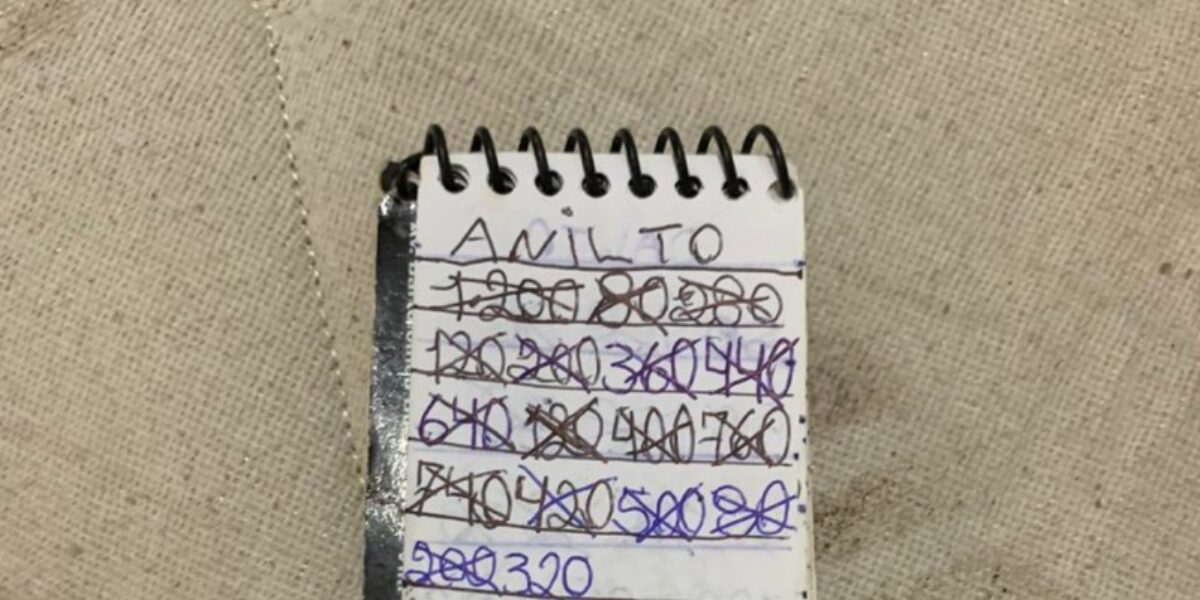 ANiLTO
1200 80 280
120 200 360 440
640 120 400 760
740 420 500 80
200 320